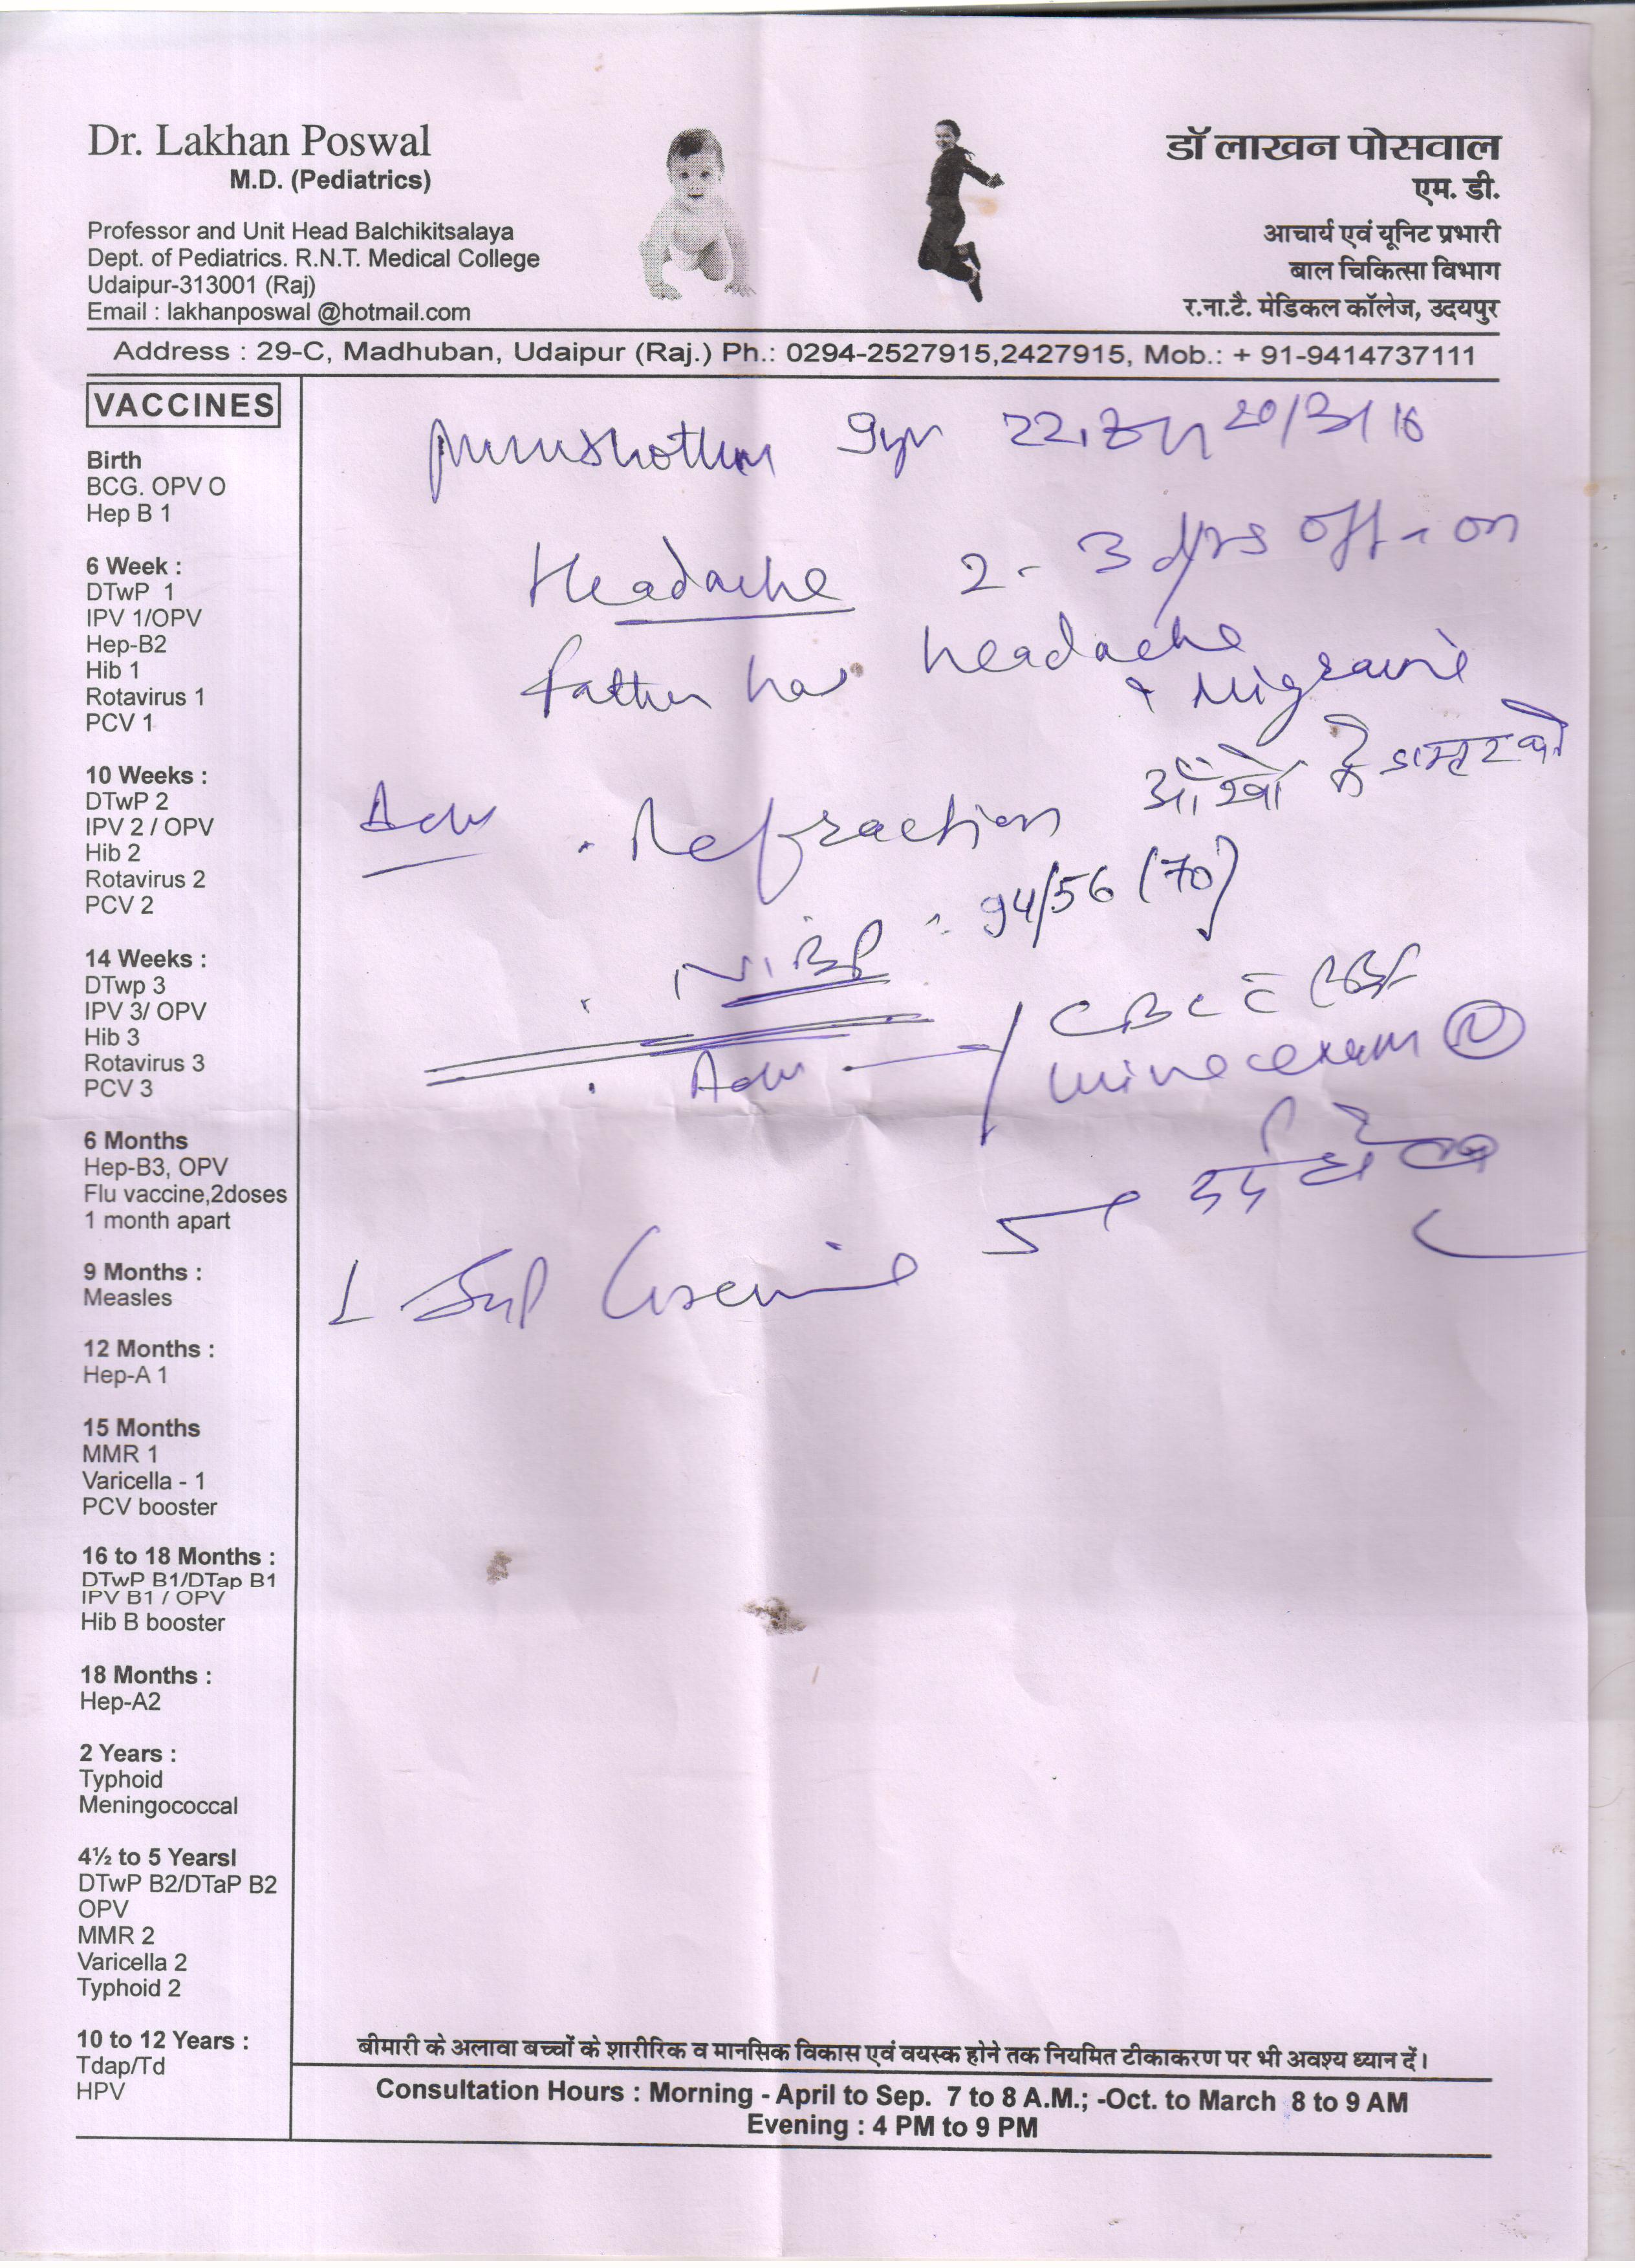 Dr. Lakhan Poswal
M.D. (Pediatrics)
Professor and Unit Head Balchikitsalaya
Dept. of Pediatrics. R.N.T. Medical College
Udaipur-313001 (Raj)
Email : lakhanposwal @hotmail.com
डॉ लाखन पोसवाल
एम. डी.
आचार्य एवं यूनिट प्रभारी
बाल चिकित्सा विभाग
र.ना.टै. मेडिकल कॉलेज, उदयपुर
Address : 29-C, Madhuban, Udaipur (Raj.) Ph.: 0294-2527915,2427915, Mob.: + 91-9414737111
VACCINES
Birth
BCG. OPV O
Hep B 1
6 Week :
DTwP 1
IPV 1/OPV
Hep-B2
Hib 1
Rotavirus 1
PCV 1
10 Weeks :
DTwP 2
IPV 2 / OPV
Hib 2
Rotavirus 2
PCV 2
14 Weeks :
DTwp 3
IPV 3/ OPV
Hib 3
Rotavirus 3
PCV 3
6 Months
Hep-B3, OPV
Flu vaccine,2doses
1 month apart
9 Months :
Measles
12 Months :
Hep-A 1
15 Months
MMR 1
Varicella - 1
PCV booster
16 to 18 Months :
DTwP B1/DTap B1
IPV B1 / OPV
Hib B booster
18 Months :
Hep-A2
2 Years :
Typhoid
Meningococcal
4½ to 5 Yearsl
DTwP B2/DTaP B2
OPV
MMR 2
Varicella 2
Typhoid 2
10 to 12 Years :
Tdap/Td
HPV
9yr 20/3/16
Headache 2 - 3 off - on
father has headache
Migraine
Adv . Refraction आँखों के
NIBP : 94/56 (70)
Adv CBC
urine exam (N)
दर्द
बीमारी के अलावा बच्चों के शारीरिक व मानसिक विकास एवं वयस्क होने तक नियमित टीकाकरण पर भी अवश्य ध्यान दें।
Consultation Hours : Morning - April to Sep. 7 to 8 A.M.; -Oct. to March 8 to 9 AM
Evening : 4 PM to 9 PM